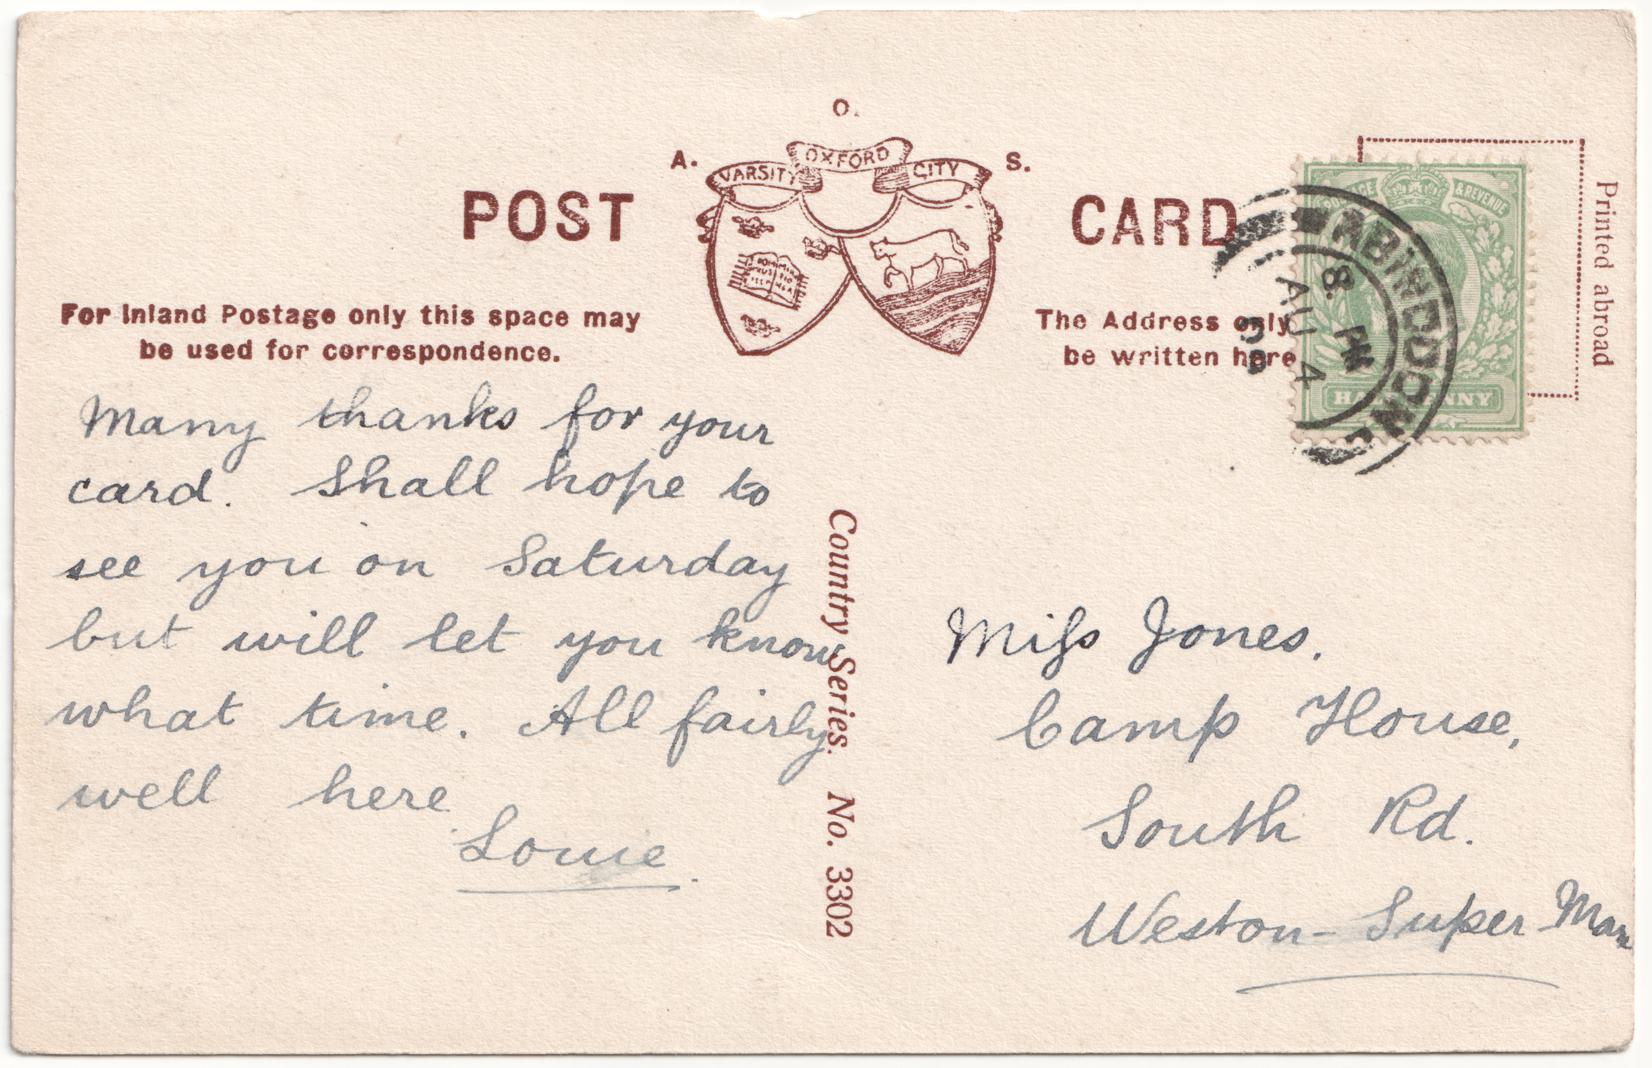 O.
A.
S.
VARSITY
OXFORD
CITY
POST
CARD
For Inland Postage only this space may
be used for correspondence.
The Address only
be written here
POSTAGE & REVENUE
HALFPENNY
ABINGDON
8. PM
AU 4
09
Printed abroad
Many thanks for your
card. Shall hope to
see you on Saturday
but will let you know
what time. All fairly
well here
Louie.
Country Series. No. 3302
Miss Jones.
Camp House,
South Rd.
Weston-Super Mare